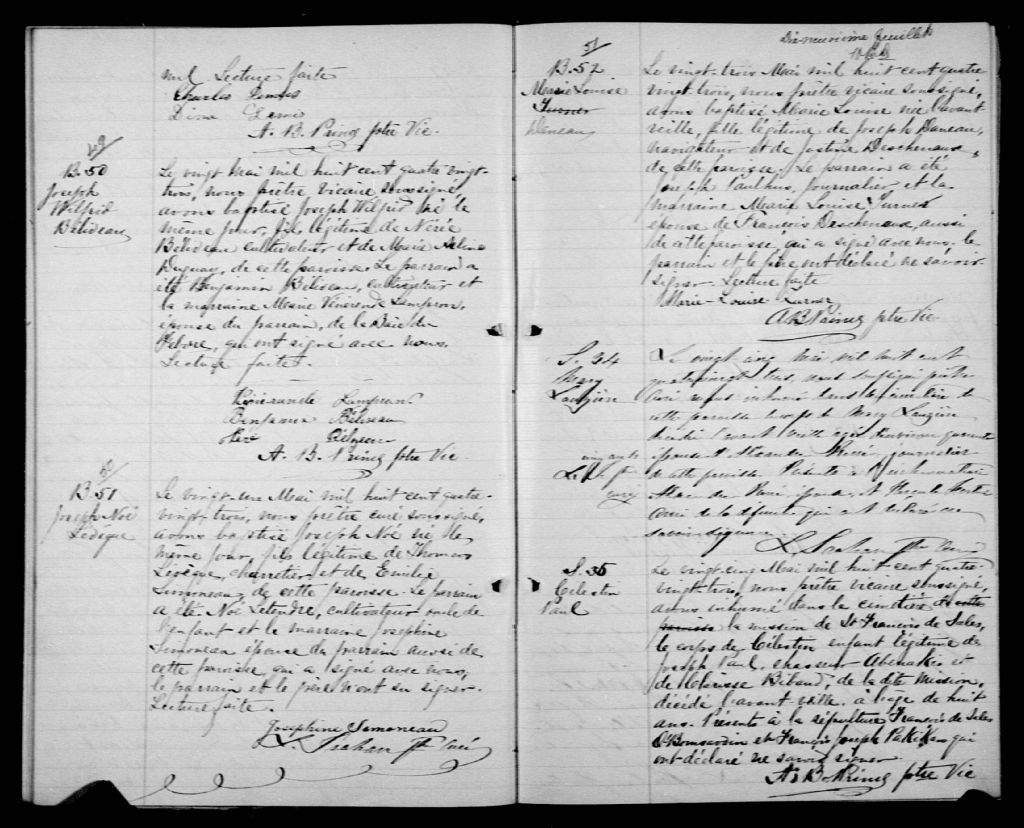 mil Lecture faite
Charles
A. B. Prince ptre Vic.
49
B. 50
Joseph
Wilfrid
Béliveau
Le vingt Mai mil huit cent quatre vingt-
trois, nous prêtre vicaire soussigné
avons baptisé Joseph Wilfrid né le
même jour, fils légitime de Nérée
Béliveau cultivateur et de Marie
Duguay, de cette paroisse. Le parrain a
été Benjamin Béliveau, cultivateur et
la marraine Marie Vénérende Lampron,
épouse du parrain, de la Baie du
Febvre, qui ont signé avec nous.
Lecture faite.
Vénérande Lampron
Benjamin Béliveau
A. B. Prince ptre Vic.
50
B. 51
Joseph Noé
Lévêque
Le vingt-un Mai mil huit cent quatre-
vingt-trois, nous prêtre curé soussigné,
avons baptisé Joseph Noé né le
même jour, fils légitime de Thomas
Lévêque, charretier et de Emilie
Simoneau, de cette paroisse. Le parrain
a été Noé Letendre, cultivateur oncle de
l'enfant et la marraine Josephine
Simoneau épouse du parrain aussi de
cette paroisse, qui a signé avec nous,
le parrain et le père n'ont su signer.
Lecture faite.
Josephine Simoneau
ptre Curé
Dix-neuvième feuillet
51
B. 52
Marie Louise
Turner
Daneau
Le vingt-trois Mai mil huit cent quatre
vingt trois, nous prêtre vicaire soussigné,
avons baptisé Marie Louise née l'avant
veille, fille légitime de Joseph Daneau,
navigateur et de Justine Descheneaux,
de cette paroisse. Le parrain a été
Joseph Paulhus, journalier et la
marraine Marie Louise Turner
épouse de François Descheneaux, aussi
de cette paroisse, qui a signé avec nous. le
parrain et le père ont déclaré ne savoir
signer. Lecture faite
Marie-Louise Turner
A B Prince ptre Vic
S. 34
Mary
Lauzière
Le vingt cinq mai mil huit cent
quatrevingt trois, nous soussigné prêtre
curé avons inhumé dans le cimetière de
cette paroisse le corps de Mary Lauzière
l'avant veille agée d'environ quarante
épouse journalier
de cette paroisse. Présents à l'inhumation
de la défunte, qui ont déclaré ne
savoir signer
ptre Curé
S. 35
Célestin
Paul
Le vingt-cinq Mai mil huit cent quatre-
vingt-trois, nous prêtre vicaire soussigné,
avons inhumé dans le cimetière de cette
paroisse la mission de St François de Sales,
le corps de Célestin enfant légitime de
Joseph Paul, chasseur Abenakis et
de Clarisse de la dite Mission,
décédé l'avant-veille, à l'âge de huit
ans. Présents à la sépulture François de Sales
O'Bomsawin et François Joseph qui
ont déclaré ne savoir signer
A. B. Prince ptre Vic